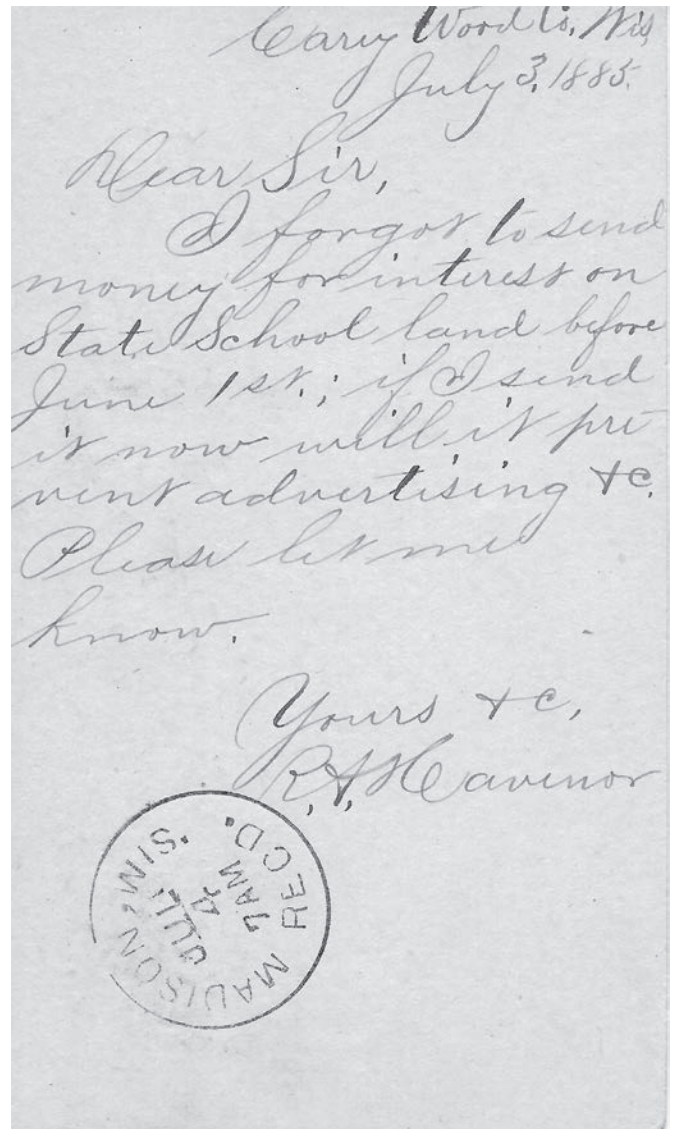 Cary Wood Co, Wis
July 3, 1885.
Dear Sir,
I forgot to send
money for interest on
State School land before
June 1st.; if I send
it now will it pre-
vent advertising &c.
Please let me
know.
Yours &c,
R. A. Havenor
MADISON, WIS. REC'D.
JUL
4
7 AM